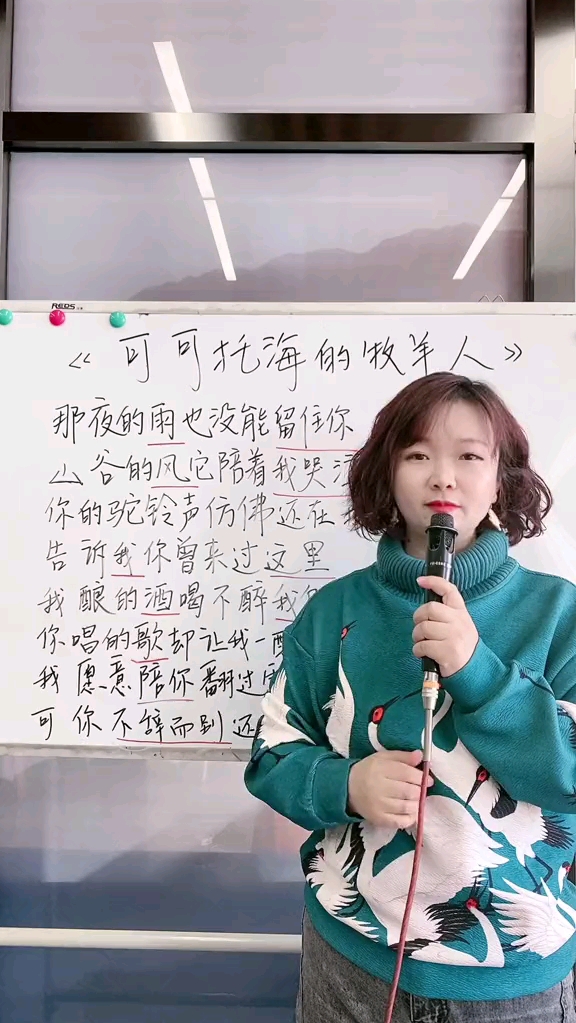 REDS
《可可托海的牧羊人》
那夜的雨也没能留住你
山谷的风它陪着我哭
你的驼铃声仿佛还在
告诉我你曾来过这里
我酿的酒喝不醉我
你唱的歌却让我一
我愿意陪你翻过
可你不辞而别还